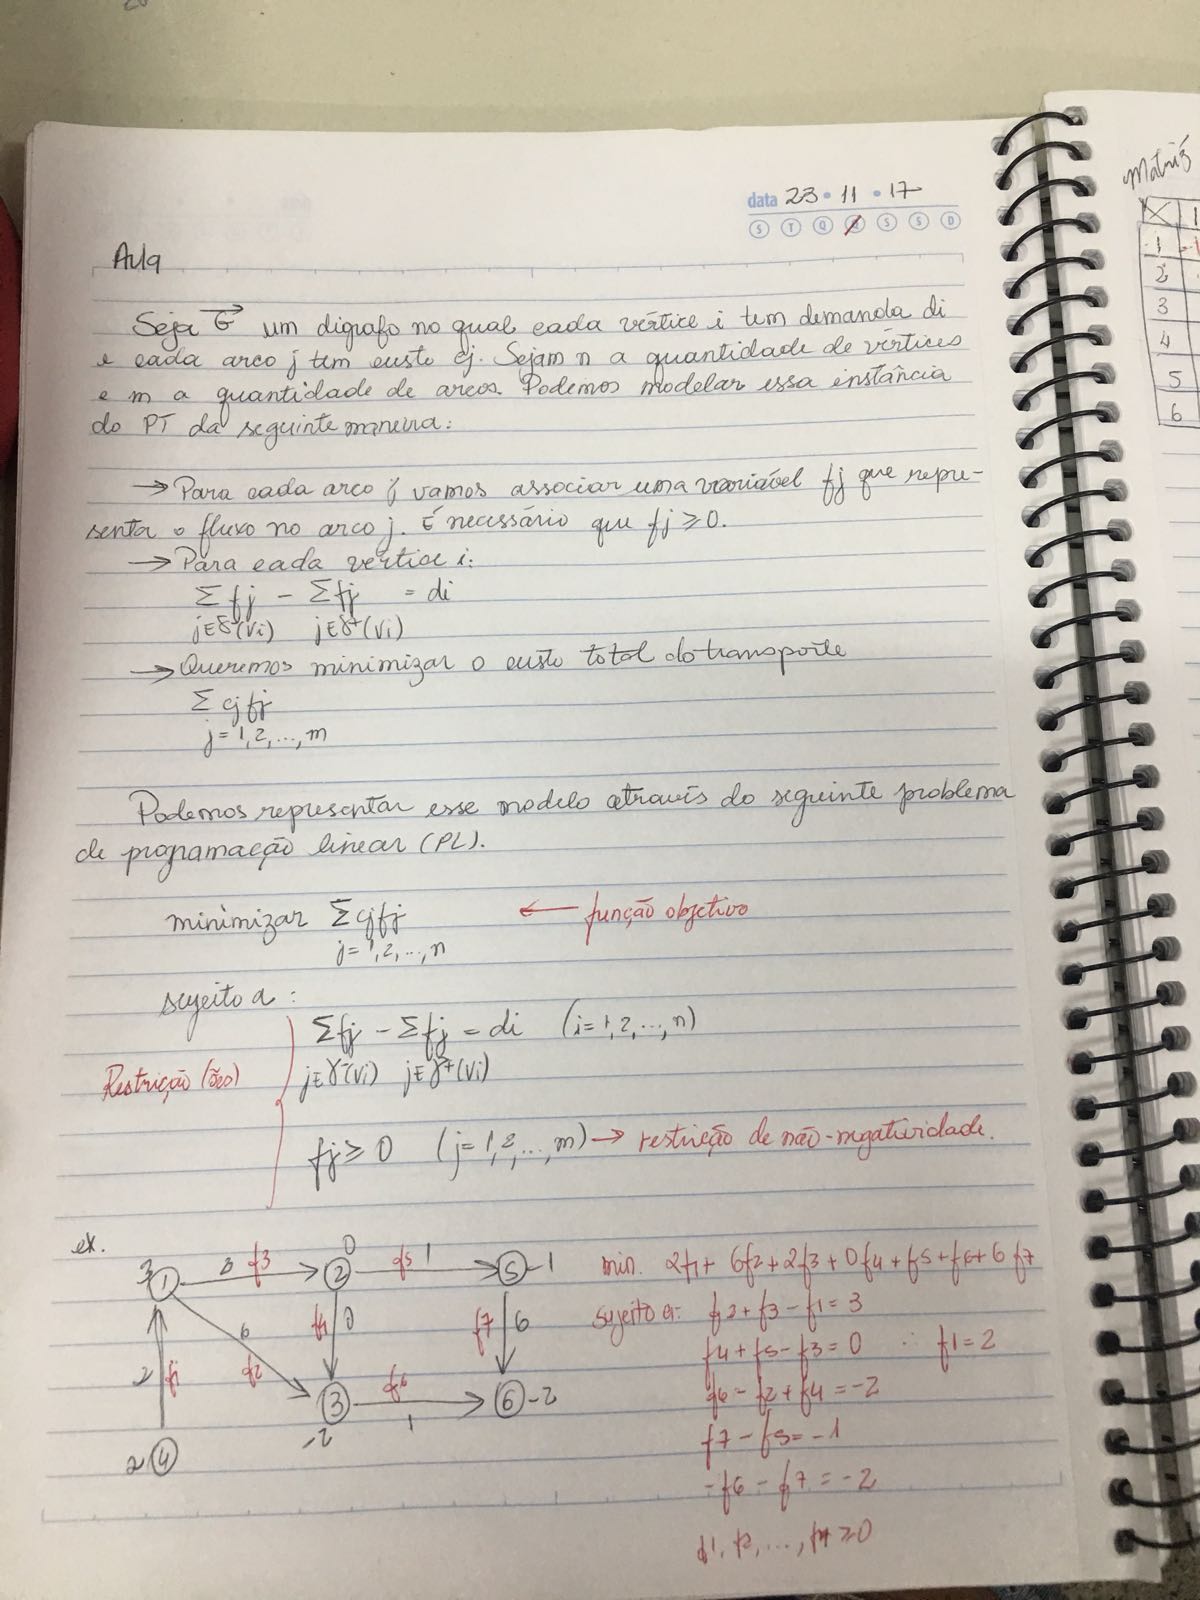 data 23 • 11 • 17
S T Q Q S S D
Aula
Seja G⃗ um digrafo no qual cada vértice i tem demanda di
e cada arco j tem custo cj. Sejam n a quantidade de vértices
e m a quantidade de arcos. Podemos modelar essa instância
do PT da seguinte maneira:
→ Para cada arco j vamos associar uma variável fj que repre-
senta o fluxo no arco j. É necessário que fj ≥ 0.
→ Para cada vértice i:
Σ fj - Σ fj = di
j∈γ-(vi) j∈γ+(vi)
→ Queremos minimizar o custo total do transporte
Σ cj fj
j = 1, 2, ..., m
Podemos representar esse modelo através do seguinte problema
de programação linear (PL).
minimizar Σ cj fj ← função objetivo
j = 1, 2, ..., n
sujeito a :
Σ fj - Σ fj = di (i = 1, 2, ..., n)
j∈γ-(vi) j∈γ+(vi)
Restrição (ões)
fj ≥ 0 (j = 1, 2, ..., m) → restrição de não-negatividade.
ex.
3 1 f3 2 0 f5 1 5 -1
6 f2 f4 0 f7 6
2 f1
3 -2 f6 1 6 -2
2 4
min. 2f1 + 6f2 + 2f3 + 0f4 + f5 + f6 + 6f7
sujeito a: f2 + f3 - f1 = 3
f4 + f5 - f3 = 0 ∴ f1 = 2
f6 - f2 + f4 = -2
f7 - f5 = -1
-f6 - f7 = -2
f1, f2, ..., f7 ≥ 0
Matriz
X 1
1 -1
2
3
4
5
6